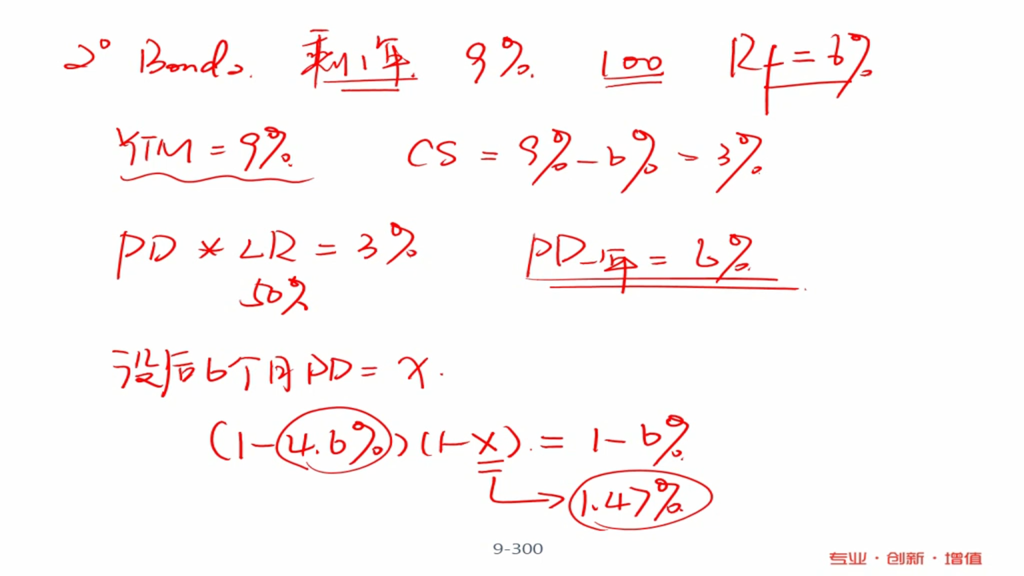 2° Bonds. 剩1年. 9%. 100 Rf = 6%
YTM = 9%. CS = 9% - 6% = 3%.
PD * LR = 3% PD一年 = 6%.
50%
设后6个月PD = x.
(1-4.6%)(1-x). = 1-6%
1.47%
9-300
专业·创新·增值